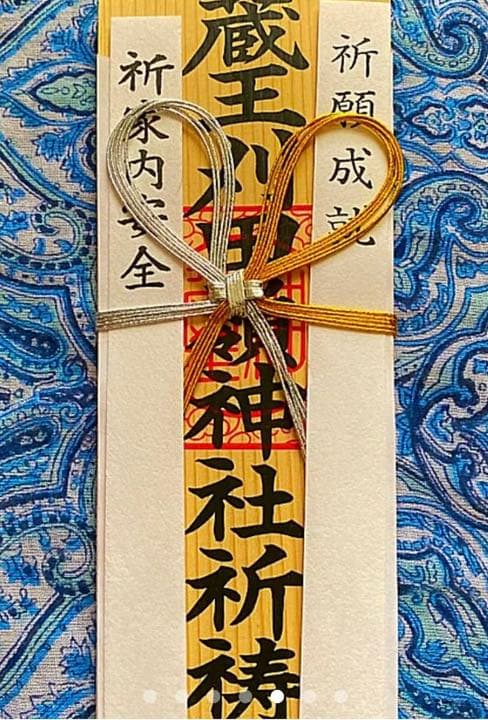 祈願成就
蔵王刈田嶺神社祈祷
祈家内安全